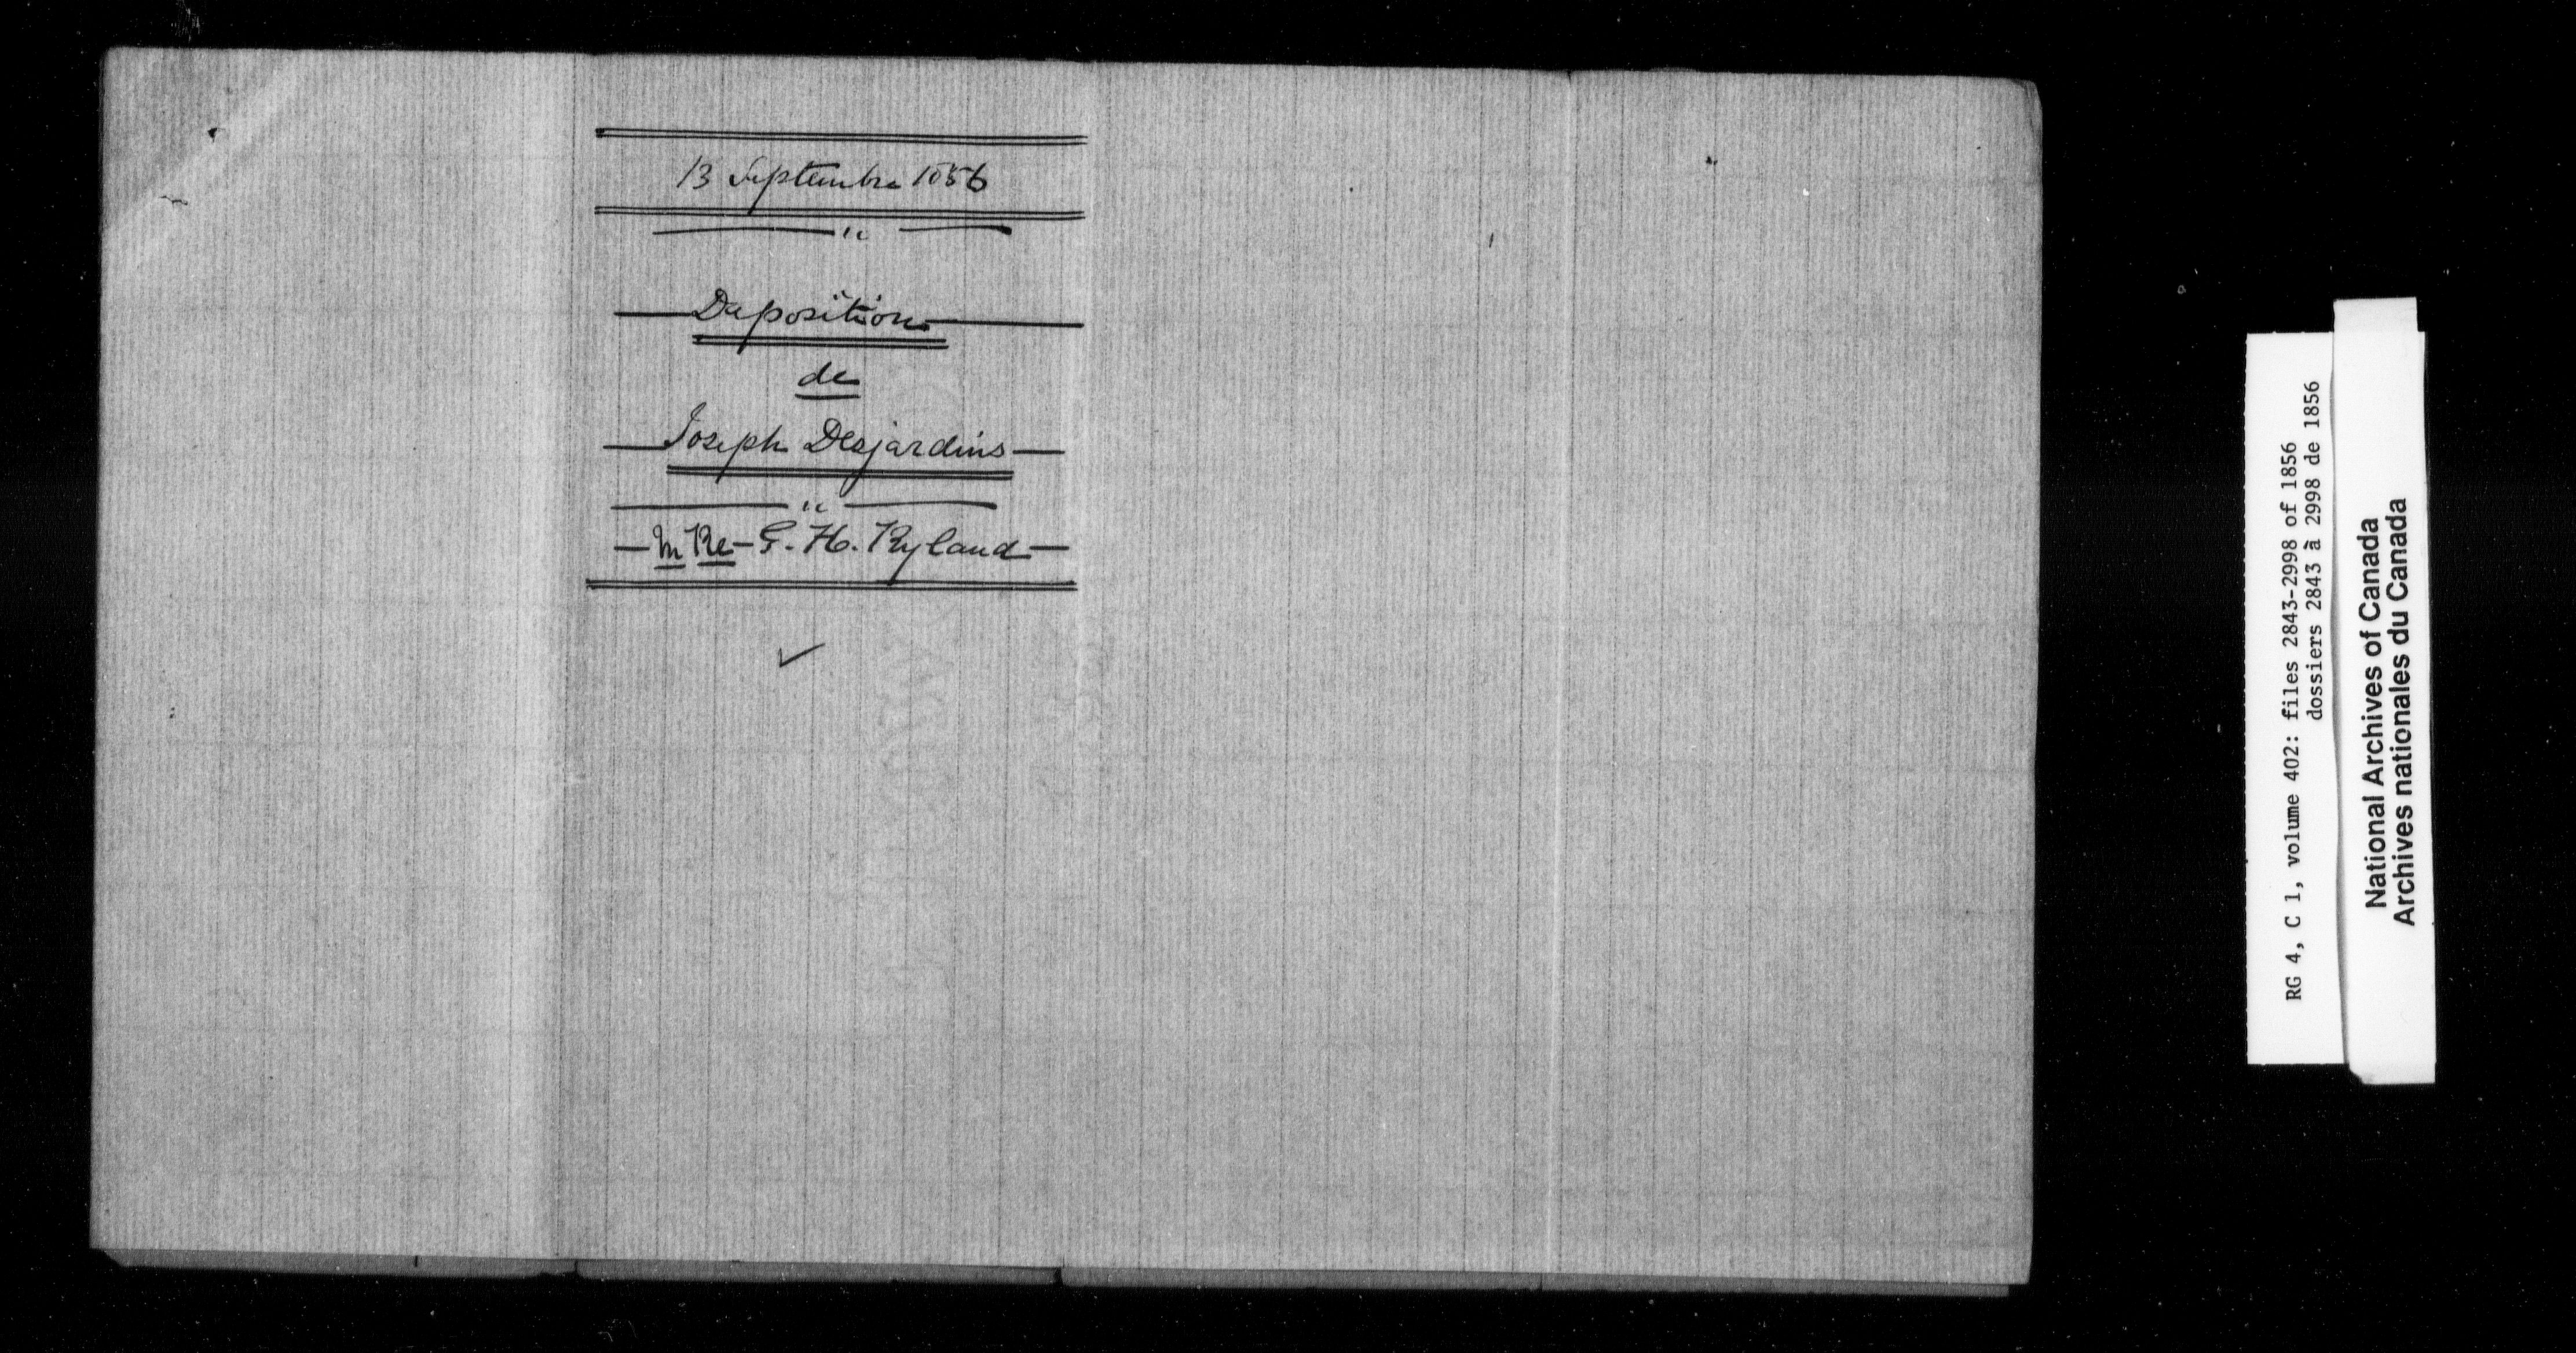 13 Septembre 1856
Deposition
de
Joseph Desjardins
In Re - G. H. Ryland
RG 4, C 1, volume 402: files 2843-2998 of 1856
dossiers 2843 à 2998 de 1856
National Archives of Canada
Archives nationales du Canada